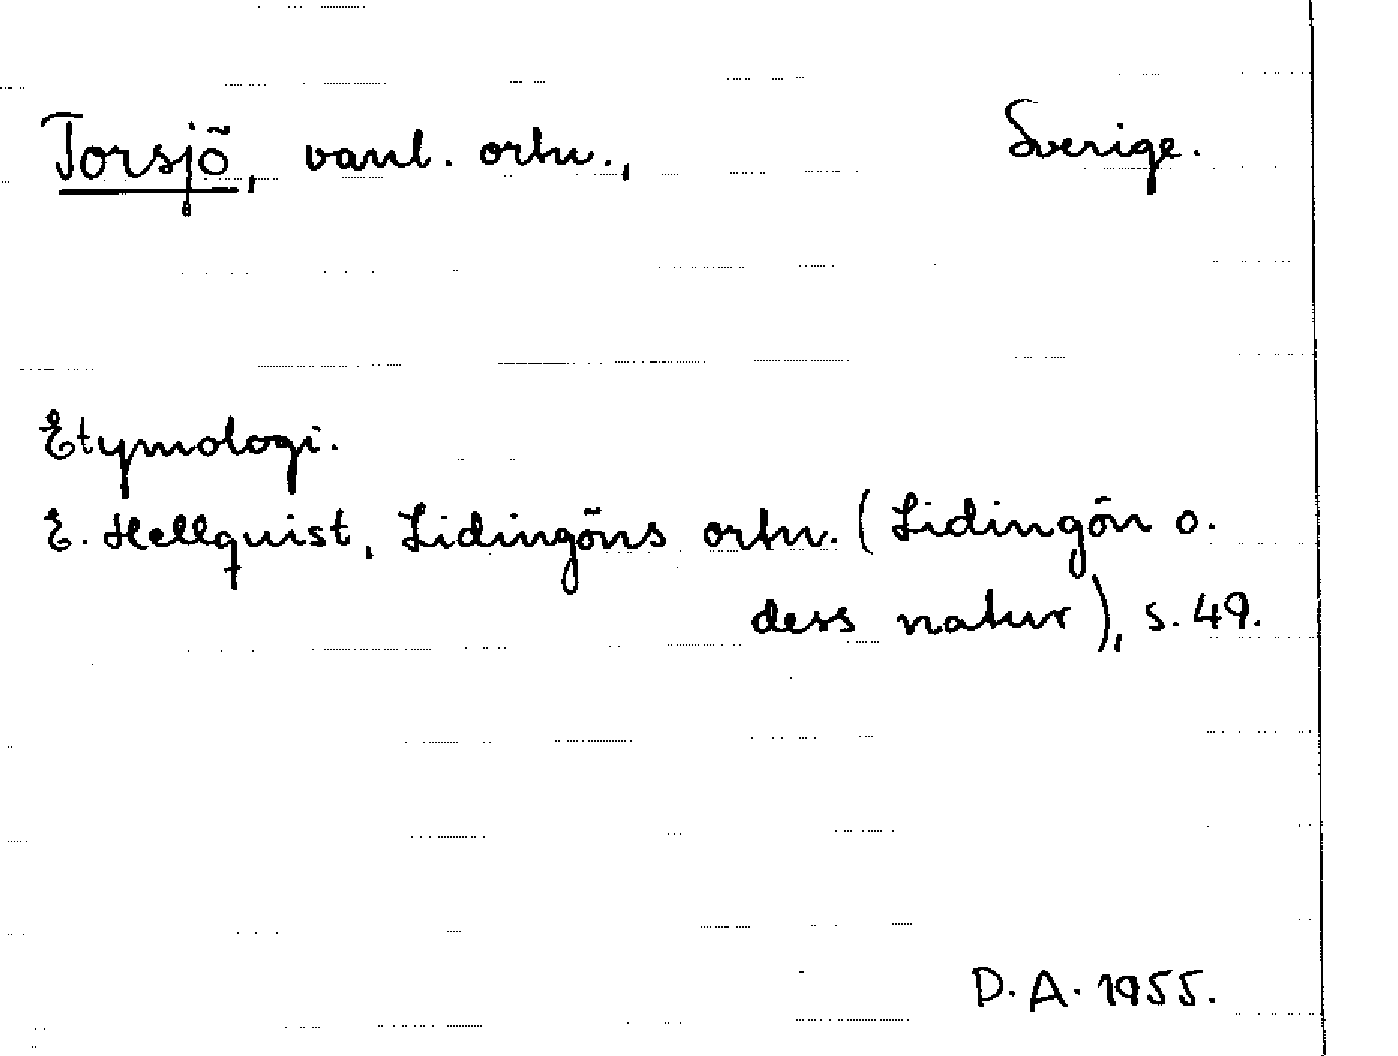 Torsjö, vanl. ortn., Sverige.
Etymologi.
E. Hellquist, Lidingöns ortn. (Lidingön o.
dess natur), s. 49.
D. A. 1955.